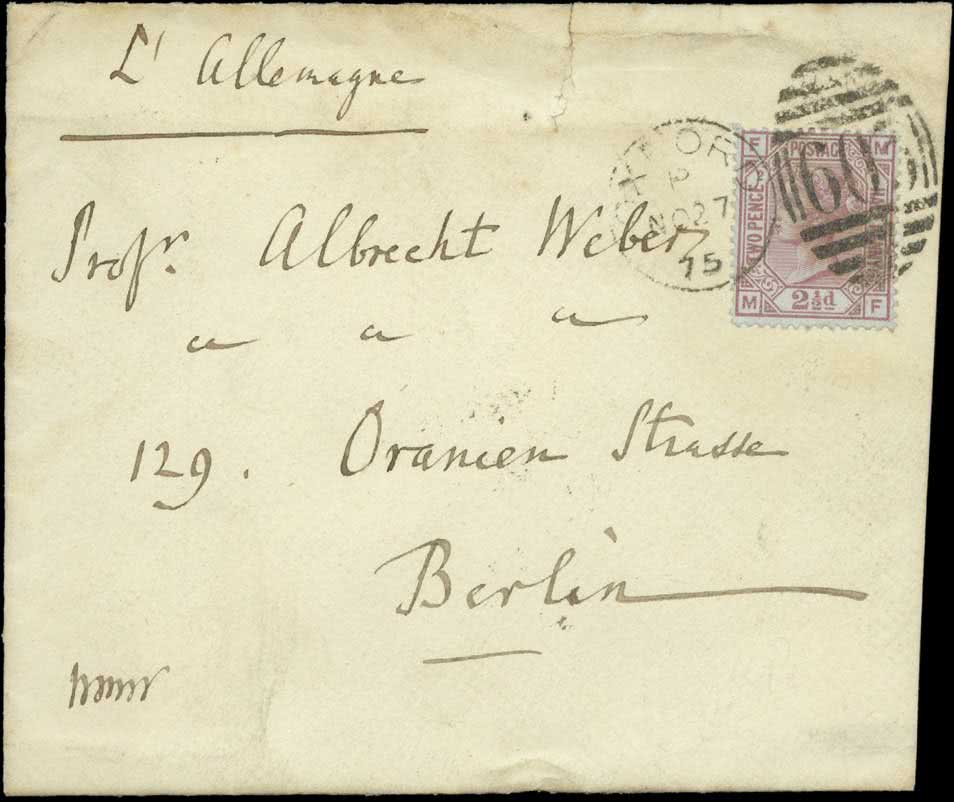 L' Allemagne
OXFORD
P
NO 27
75
60
F M
POSTAGE
TWO PENCE
2½d
M F
Profr. Albrecht Weber
" " "
129. Oranien Strasse
Berlin